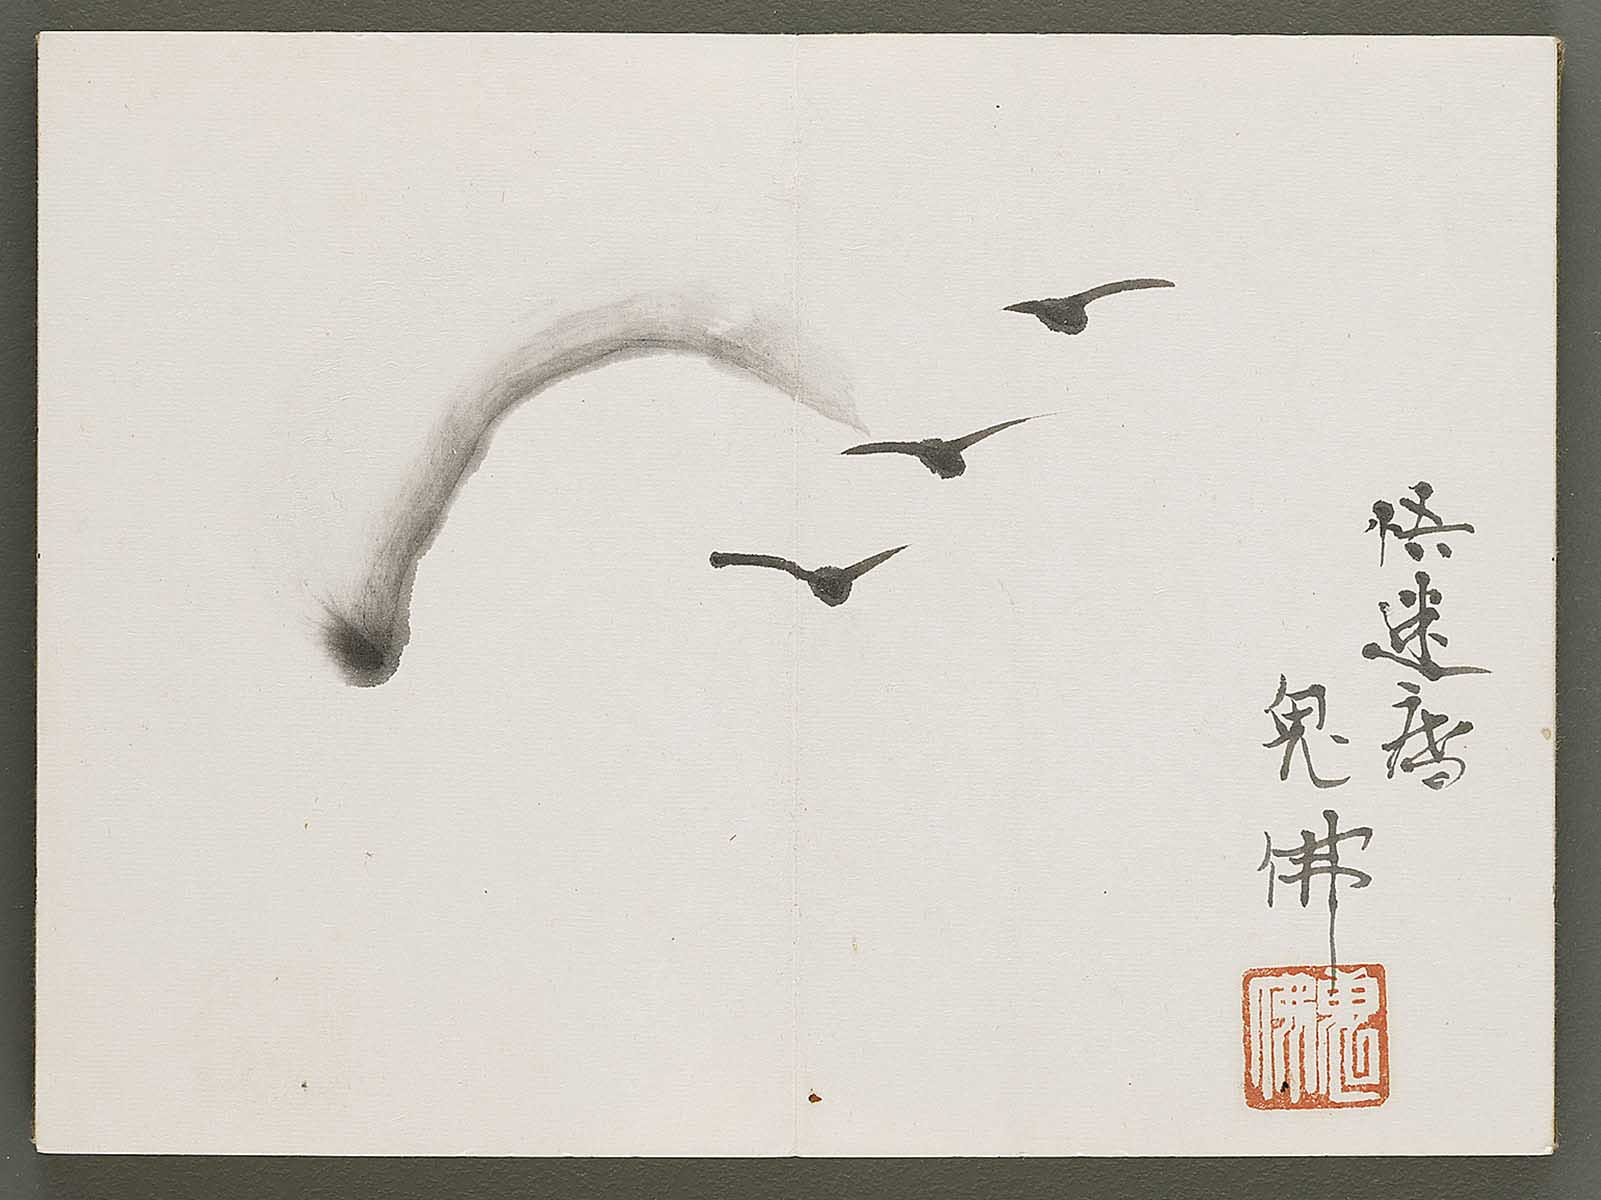 悟迷庵
鬼佛
鬼佛